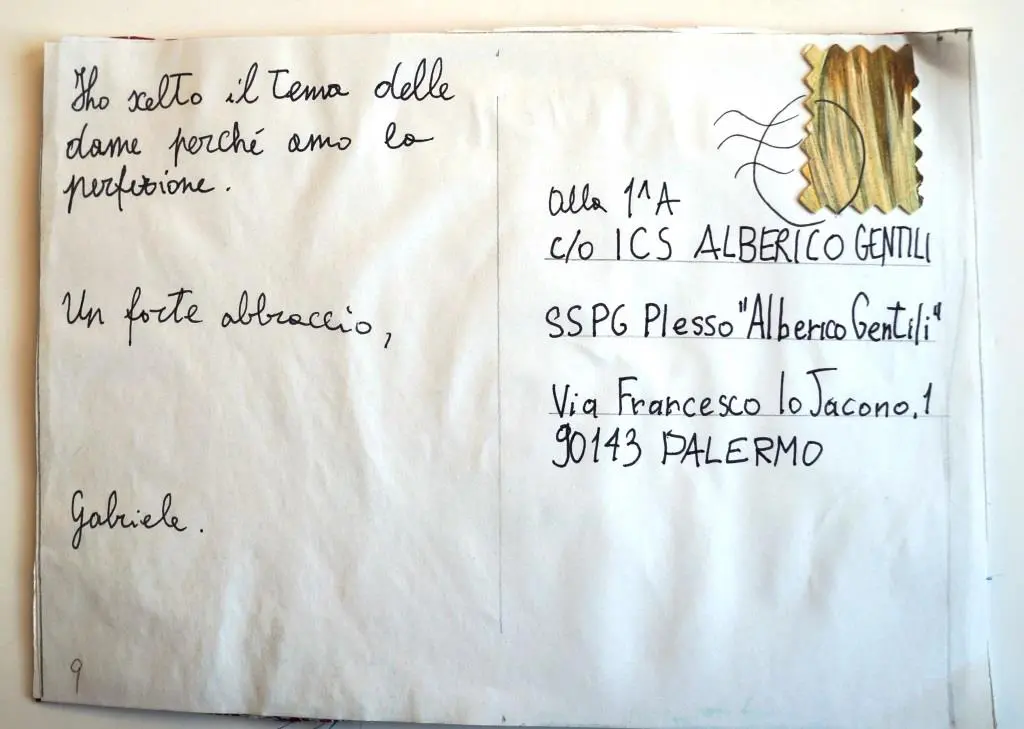 Ho scelto il tema delle
dame perché amo la
perfezione.
Un forte abbraccio,
Gabriele.
9
alla 1^A
c/o ICS ALBERICO GENTILI
SSPG Plesso "Alberico Gentili"
Via Francesco lo Jacono, 1
90143 PALERMO